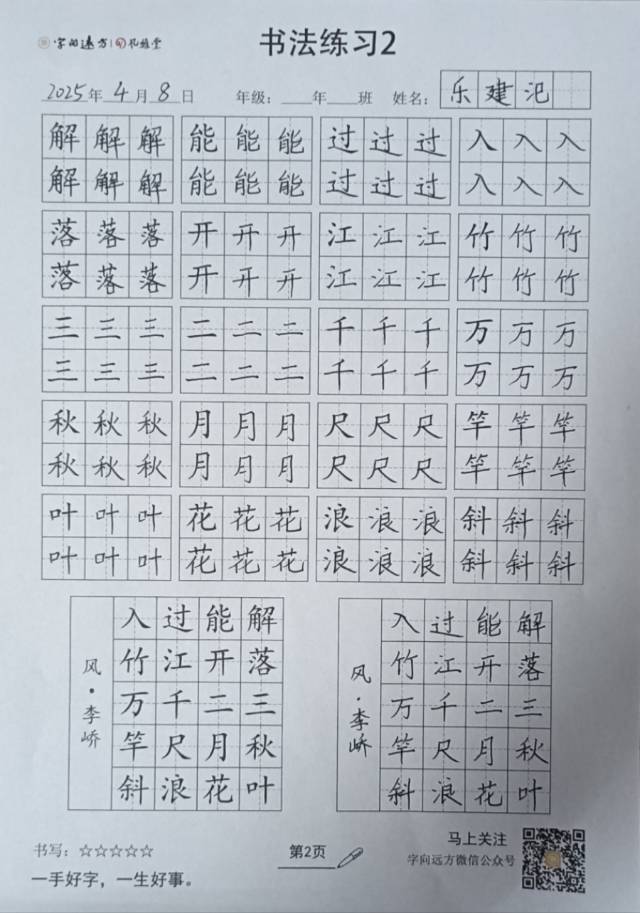 字向远方 孔雀堂
书法练习2
2025年 4月 8日 年级: 年 班 姓名: 乐建汜
解解解 能能能 过过过 入入入
解解解 能能能 过过过 入入入
落落落 开开开 江江江 竹竹竹
落落落 开开开 江江江 竹竹竹
三三三 二二二 千千千 万万万
三三三 二二二 千千千 万万万
秋秋秋 月月月 尺尺尺 竿竿竿
秋秋秋 月月月 尺尺尺 竿竿竿
叶叶叶 花花花 浪浪浪 斜斜斜
叶叶叶 花花花 浪浪浪 斜斜斜
解落三秋叶
能开二月花
过江千尺浪
入竹万竿斜
风·李峤
解落三秋叶
能开二月花
过江千尺浪
入竹万竿斜
风·李峤
书写:☆☆☆☆☆
第2页
马上关注
字向远方微信公众号
一手好字,一生好事。